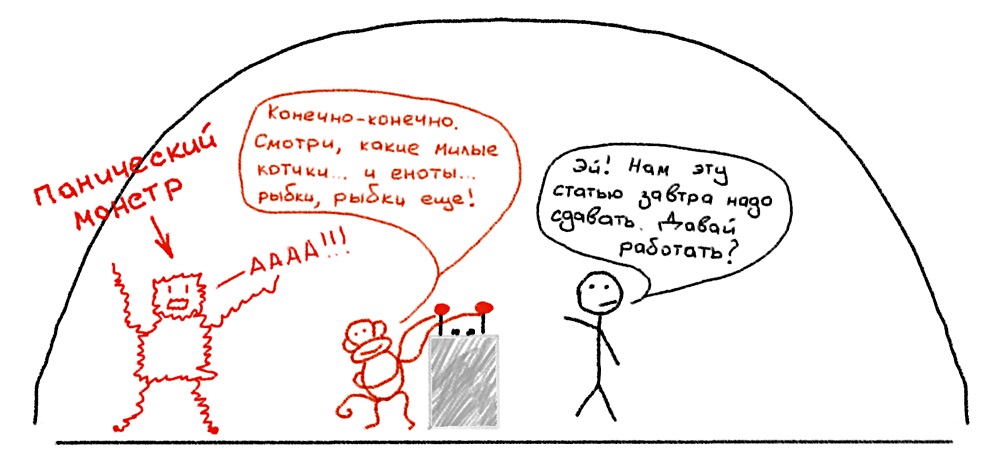 Панический
монстр
АААА!!!
Конечно-конечно.
Смотри, какие милые
котики... и еноты...
рыбки, рыбки еще!
Эй! Нам эту
статью завтра надо
сдавать. Давай
работать?